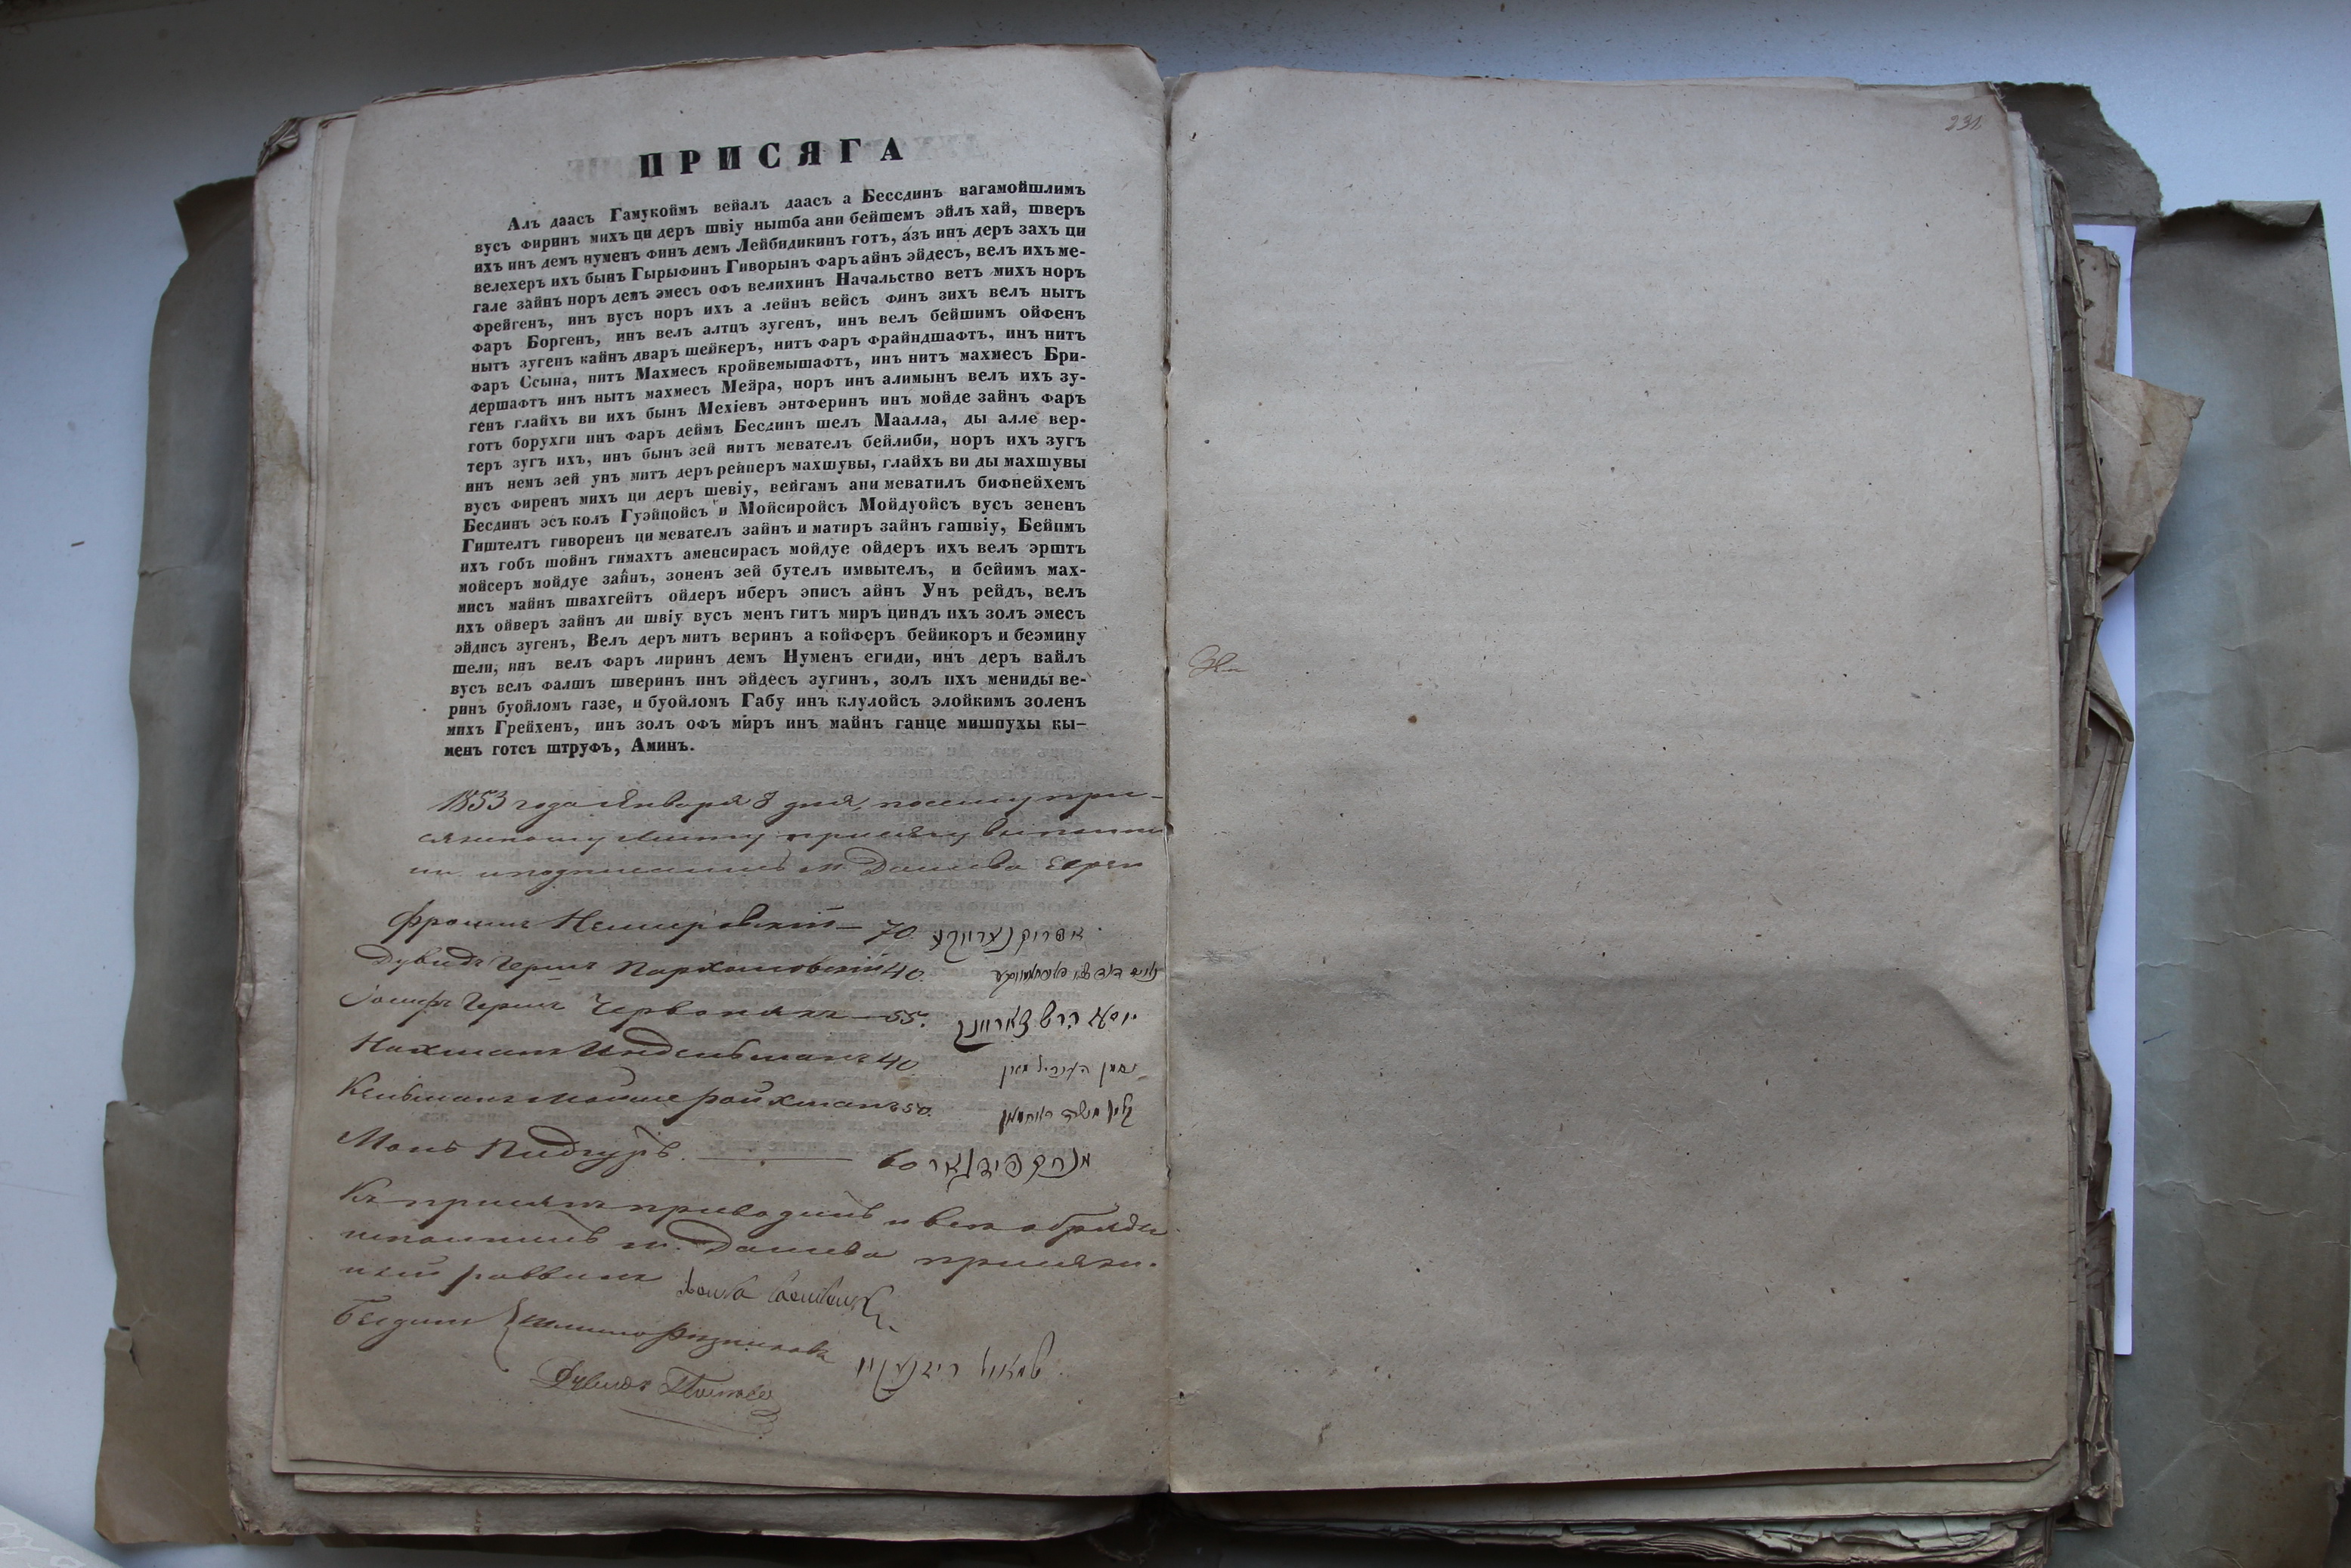 ПРИСЯГА
Алъ даасъ Гамукоймъ вейалъ даасъ а Бессдинъ вагамойшлимъ
вусъ фиринъ михъ ци деръ швіу нышба ани бейшемъ эйлъ хай, шверъ
ихъ инъ демъ нуменъ финъ демъ Лейбидикинъ готъ, азъ инъ деръ захъ ци
велехеръ ихъ бынъ Гырыфинъ Гиворынъ фаръ айнъ эйдесъ, велъ ихъ ме-
гале зайнъ норъ демъ эмесъ офъ велихинъ Начальство ветъ михъ норъ
фрейгенъ, инъ вусъ норъ ихъ а лейнъ вейсъ финъ зихъ велъ нытъ
фаръ Боргенъ, инъ велъ алтцъ зугенъ, инъ велъ бейшимъ ойфенъ
нытъ зугенъ кайнъ дваръ шейкеръ, нитъ фаръ фрайндшафтъ, инъ нитъ
фаръ Ссына, нитъ Махмесъ кройвемышафтъ, инъ нитъ махмесъ Бри-
дершафтъ инъ нытъ махмесъ Мейра, норъ инъ алимынъ велъ ихъ зу-
генъ глайхъ ви ихъ бынъ Мехіевъ энтферинъ инъ мойде зайнъ фаръ
готъ борухги инъ фаръ деймъ Бесдинъ шелъ Маалла, ды алле вер-
теръ зугъ ихъ, инъ бынъ зей нитъ мевателъ бейлиби, норъ ихъ зугъ
инъ немъ зей унъ митъ деръ рейнеръ махшувы, глайхъ ви ды махшувы
вусъ фиренъ михъ ци деръ шевіу, вейгамъ ани меватилъ бифнейхемъ
Бесдинъ эсъ колъ Гуэйцойсъ и Мойсиройсъ Мойдуойсъ вусъ зененъ
Гиштелтъ гиворенъ ци мевателъ зайнъ и матиръ зайнъ гашвіу, Бейимъ
ихъ гобъ шойнъ гимахтъ аменсирасъ мойдуе ойдеръ ихъ велъ эрштъ
мойсеръ мойдуе зайнъ, зоненъ зей бутелъ имвытелъ, и бейимъ мах-
мисъ майнъ швахгейтъ ойдеръ иберъ эписъ айнъ Унъ рейдъ, велъ
ихъ ойверъ зайнъ ди швіу вусъ менъ гитъ миръ циндъ ихъ золъ эмесъ
эйдисъ зугенъ, Велъ деръ митъ веринъ а койферъ бейикоръ и беэмину
шели, инъ велъ фаръ лиринъ демъ Нуменъ егиди, инъ деръ вайлъ
вусъ велъ фалшъ шверинъ инъ эйдесъ зугинъ, золъ ихъ мениды ве-
ринъ буойломъ газе, и буойломъ Габу инъ клулойсъ элойкимъ золенъ
михъ Грейхенъ, инъ золъ офъ миръ инъ майнъ ганце мишпухы кы-
менъ готсъ штруфъ, Аминъ.
1853 года Января 8 дня, посему при-
сяжному листу присягу выполни
ли и подписались м. Дашева Евреи
Фроимъ Немировскій — 70.
Дувидъ Гершъ Пархомовскій 40.
Іосифъ Гершъ Червонякъ — 55. יוסף הרש
Нахманъ Индельманъ 40. נחמן
Кельманъ Мойше Ройхманъ 50.
Моно Пидгуръ. — 60
Къ присягѣ приводилъ и всѣ обряды
исполнилъ м. Дашева присяж-
ный раввинъ
Бесдинъ Шмуль Резниковъ שמואל
Дувидъ
231